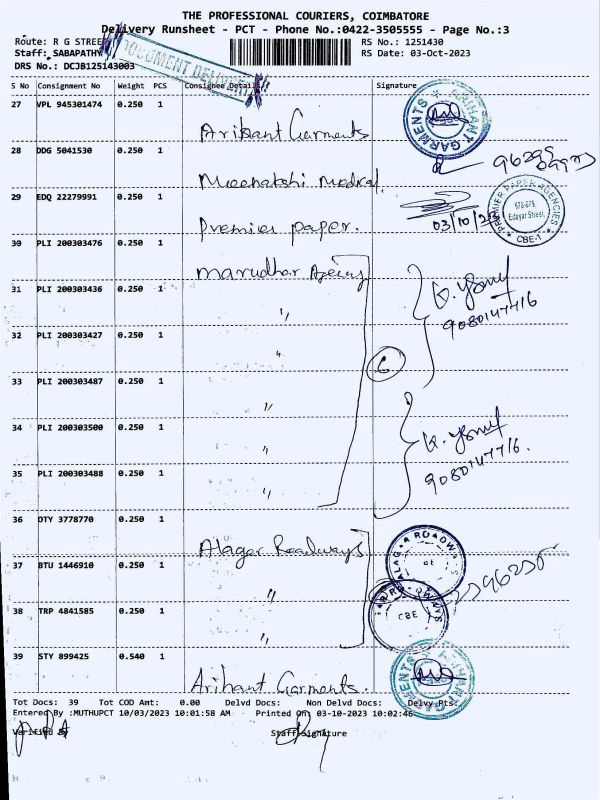 THE PROFESSIONAL COURIERS, COIMBATORE
Delivery Runsheet - PCT - Phone No.:0422-3505555 - Page No.:3
Route: R G STREET
RS No.: 1251430
Staff: SABAPATHY
RS Date: 03-Oct-2023
DRS No.: DCJB125143003
DOCUMENT DELIVERY
S No Consignment No Weight PCS Consignee Details Signature
27 VPL 945301474 0.250 1
Arihant Garments
ARIHANT GARMENTS
28 DDG 5041530 0.250 1
Meenakshi Medical
29 EDQ 22279991 0.250 1
Premier paper.
03/10/23
PREMIER PAPER AGENCIES
Edayar Street,
CBE-1
30 PLI 200303476 0.250 1
Marudhar Agency
31 PLI 200303436 0.250 1
"
9080147716
32 PLI 200303427 0.250 1
"
6
33 PLI 200303487 0.250 1
"
34 PLI 200303500 0.250 1
"
9080147716.
35 PLI 200303488 0.250 1
"
36 DTY 3778770 0.250 1
Alagar Roadways
37 BTU 1446910 0.250 1
"
38 TRP 4841585 0.250 1
"
CBE
39 STY 899425 0.540 1
Arihant Garments.
ARIHANT GARMENTS
Tot Docs: 39 Tot COD Amt: 0.00 Delvd Docs: Non Delvd Docs: Delvy Pts:
Entered By :MUTHUPCT 10/03/2023 10:01:58 AM - Printed On 03-10-2023 10:02:46
Verified By Staff Signature